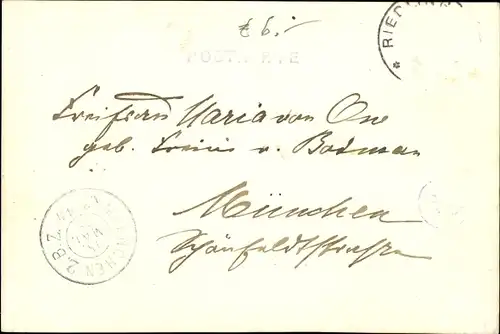 € 6.-
POSTKARTE
* RIED
Freifrau Maria von Ow
geb. Freiin v. Bodman
München
Schönfeldtstrasse
MUENCHEN 2.B.Z.